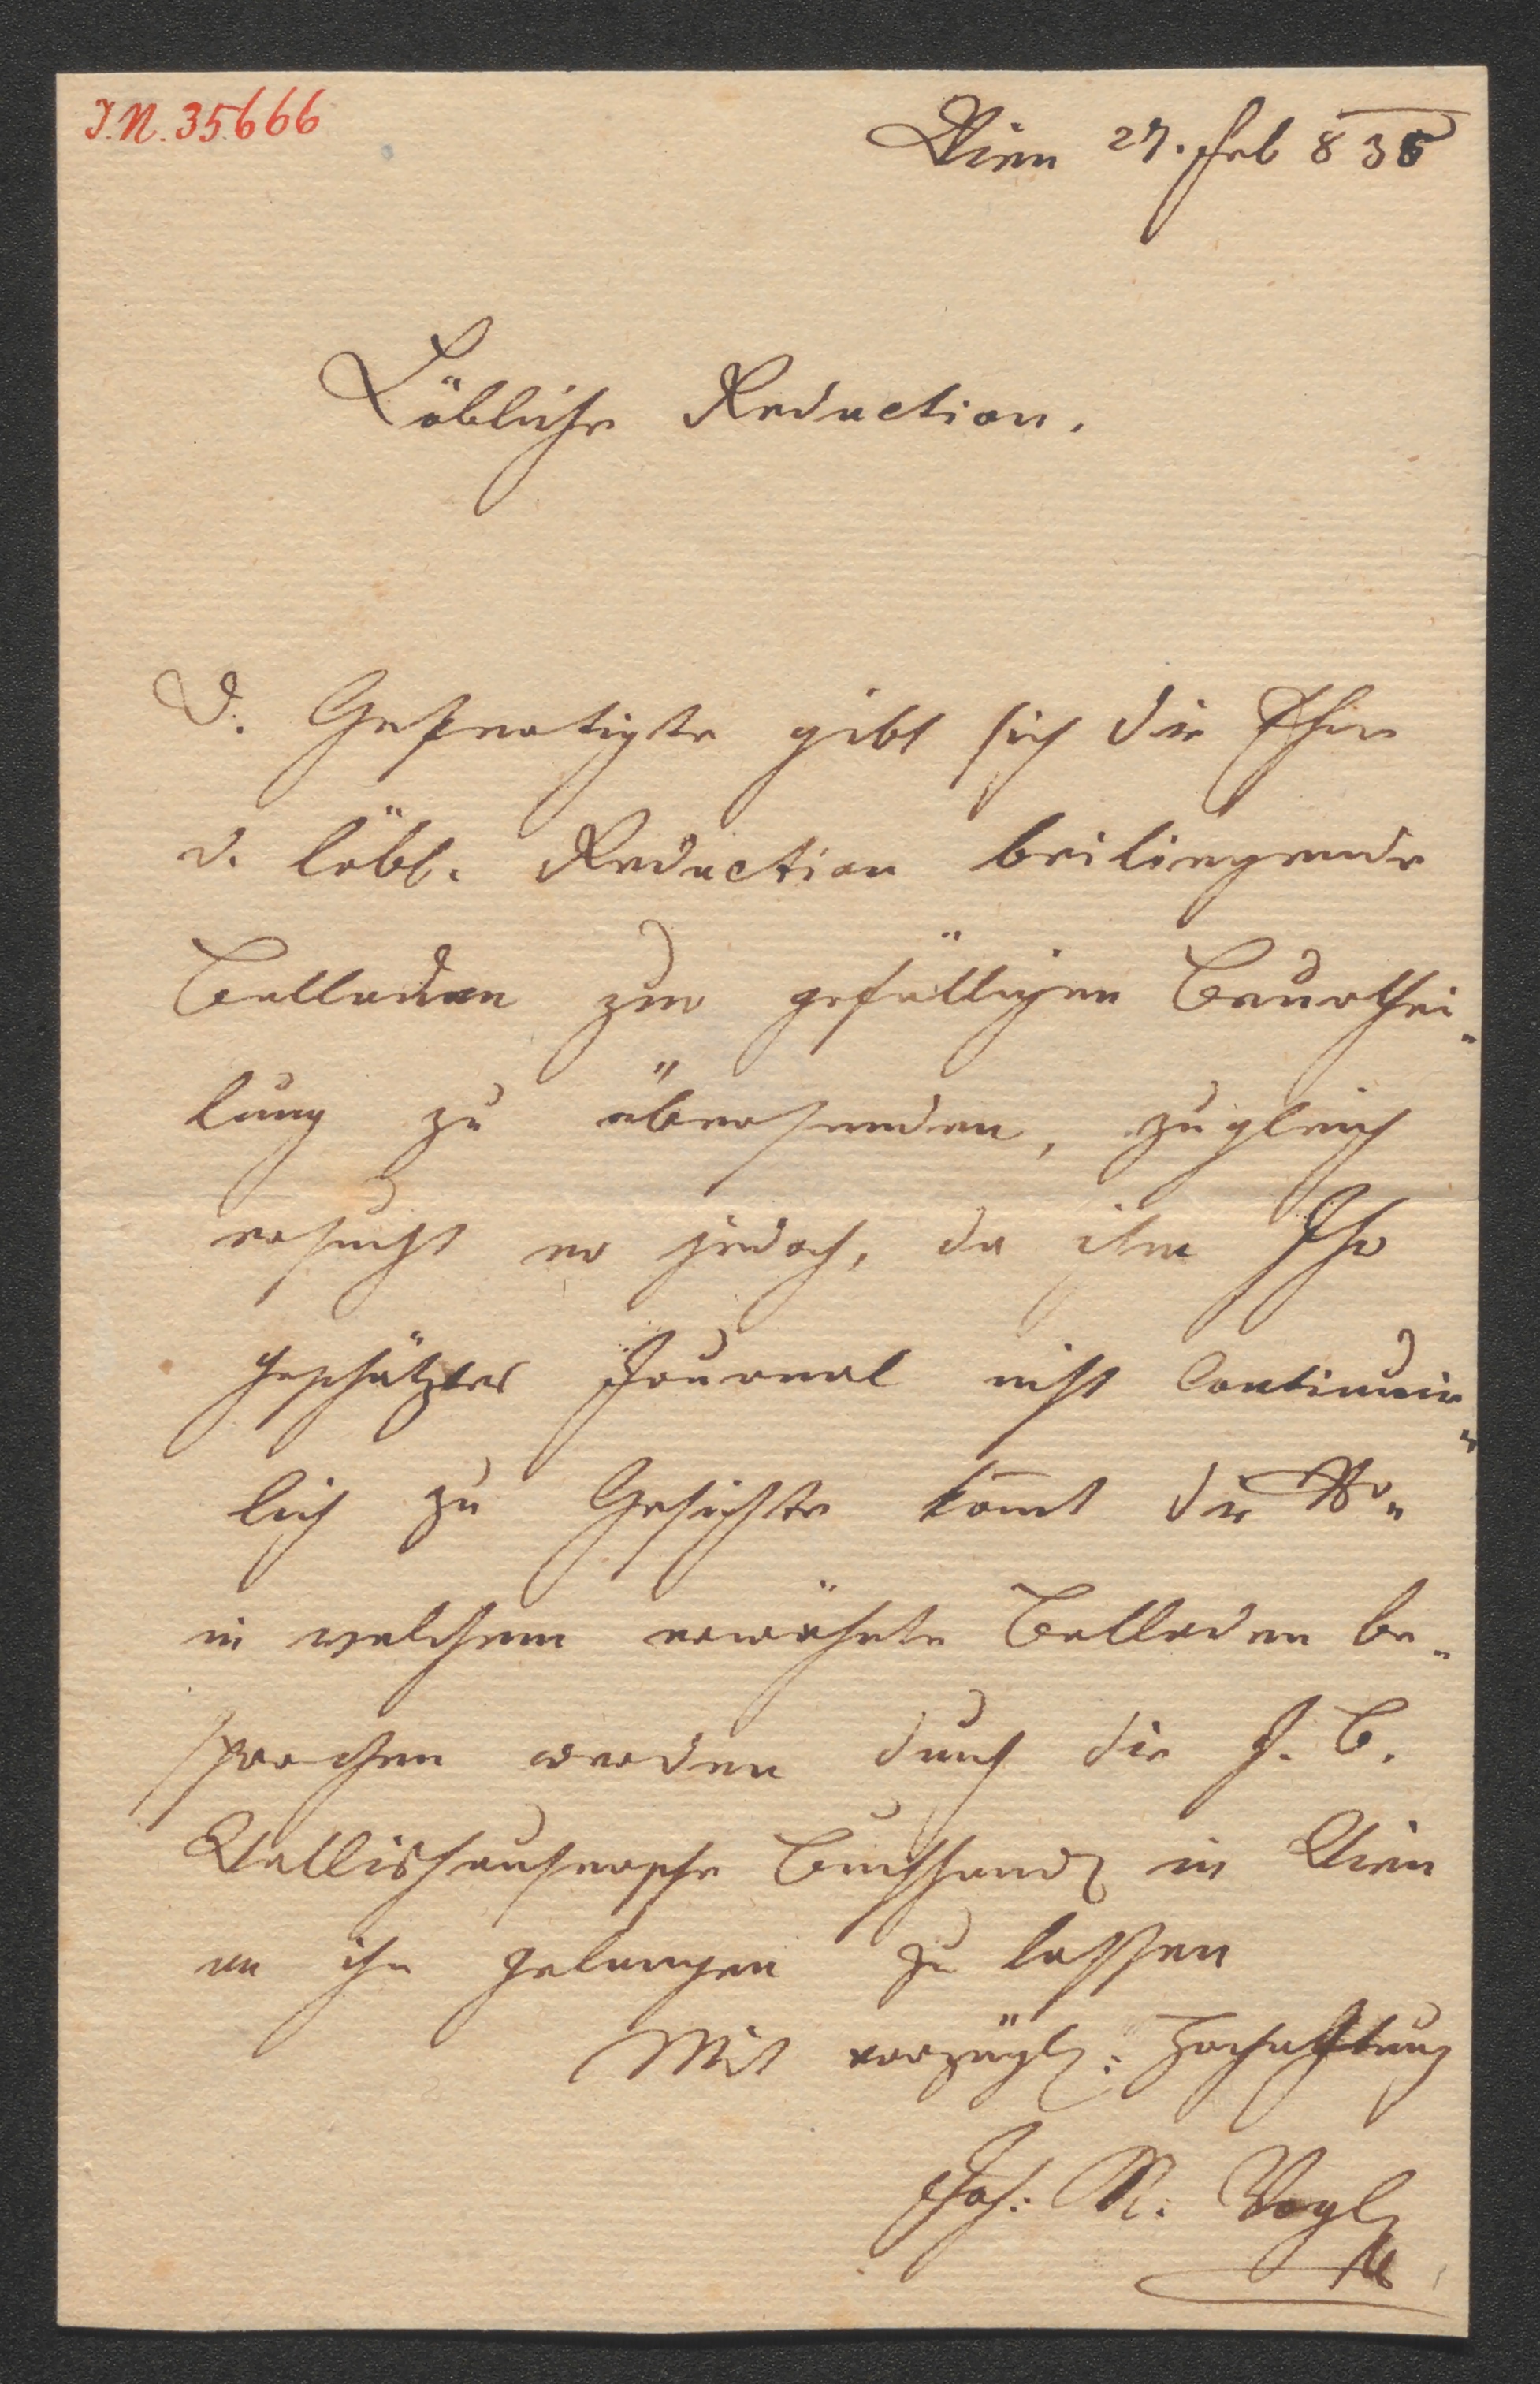 I.N. 35666
Wien 27. Feb 835
Löbliche Redaction.
D. Gefertigte gibt sich die Ehre
d. löbl. Redaction beiliegende
Balladen zur gefälligen Beurthei-
lung zu übersenden, zugleich
ersucht er jedoch, da ihm Ihr
geschätztes Journal nicht continuir-
lich zu Gesichte kom̄t die Nr.
in welchem erwähnte Balladen be-
sprochen werden durch die J. B.
Wallishaussersche Buchhandl in Wien
an ihn gelangen zu lassen
Mit vorzügl: Hochachtung
Joh: N. Vogl